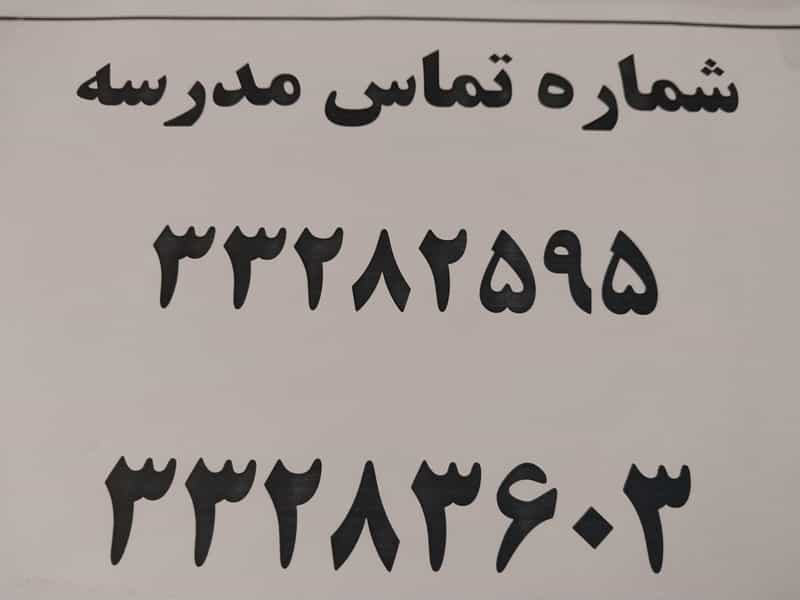 شماره تماس مدرسه
۳۳۲۸۲۵۹۵
۳۳۲۸۳۶۰۳